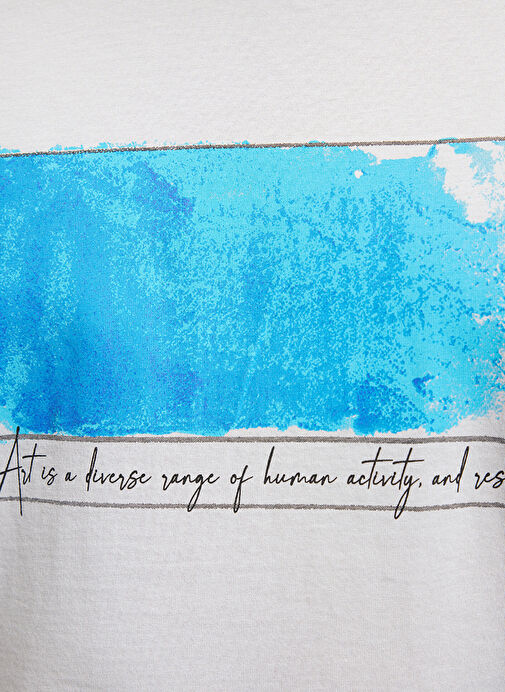 Art is a diverse range of human activity, and res